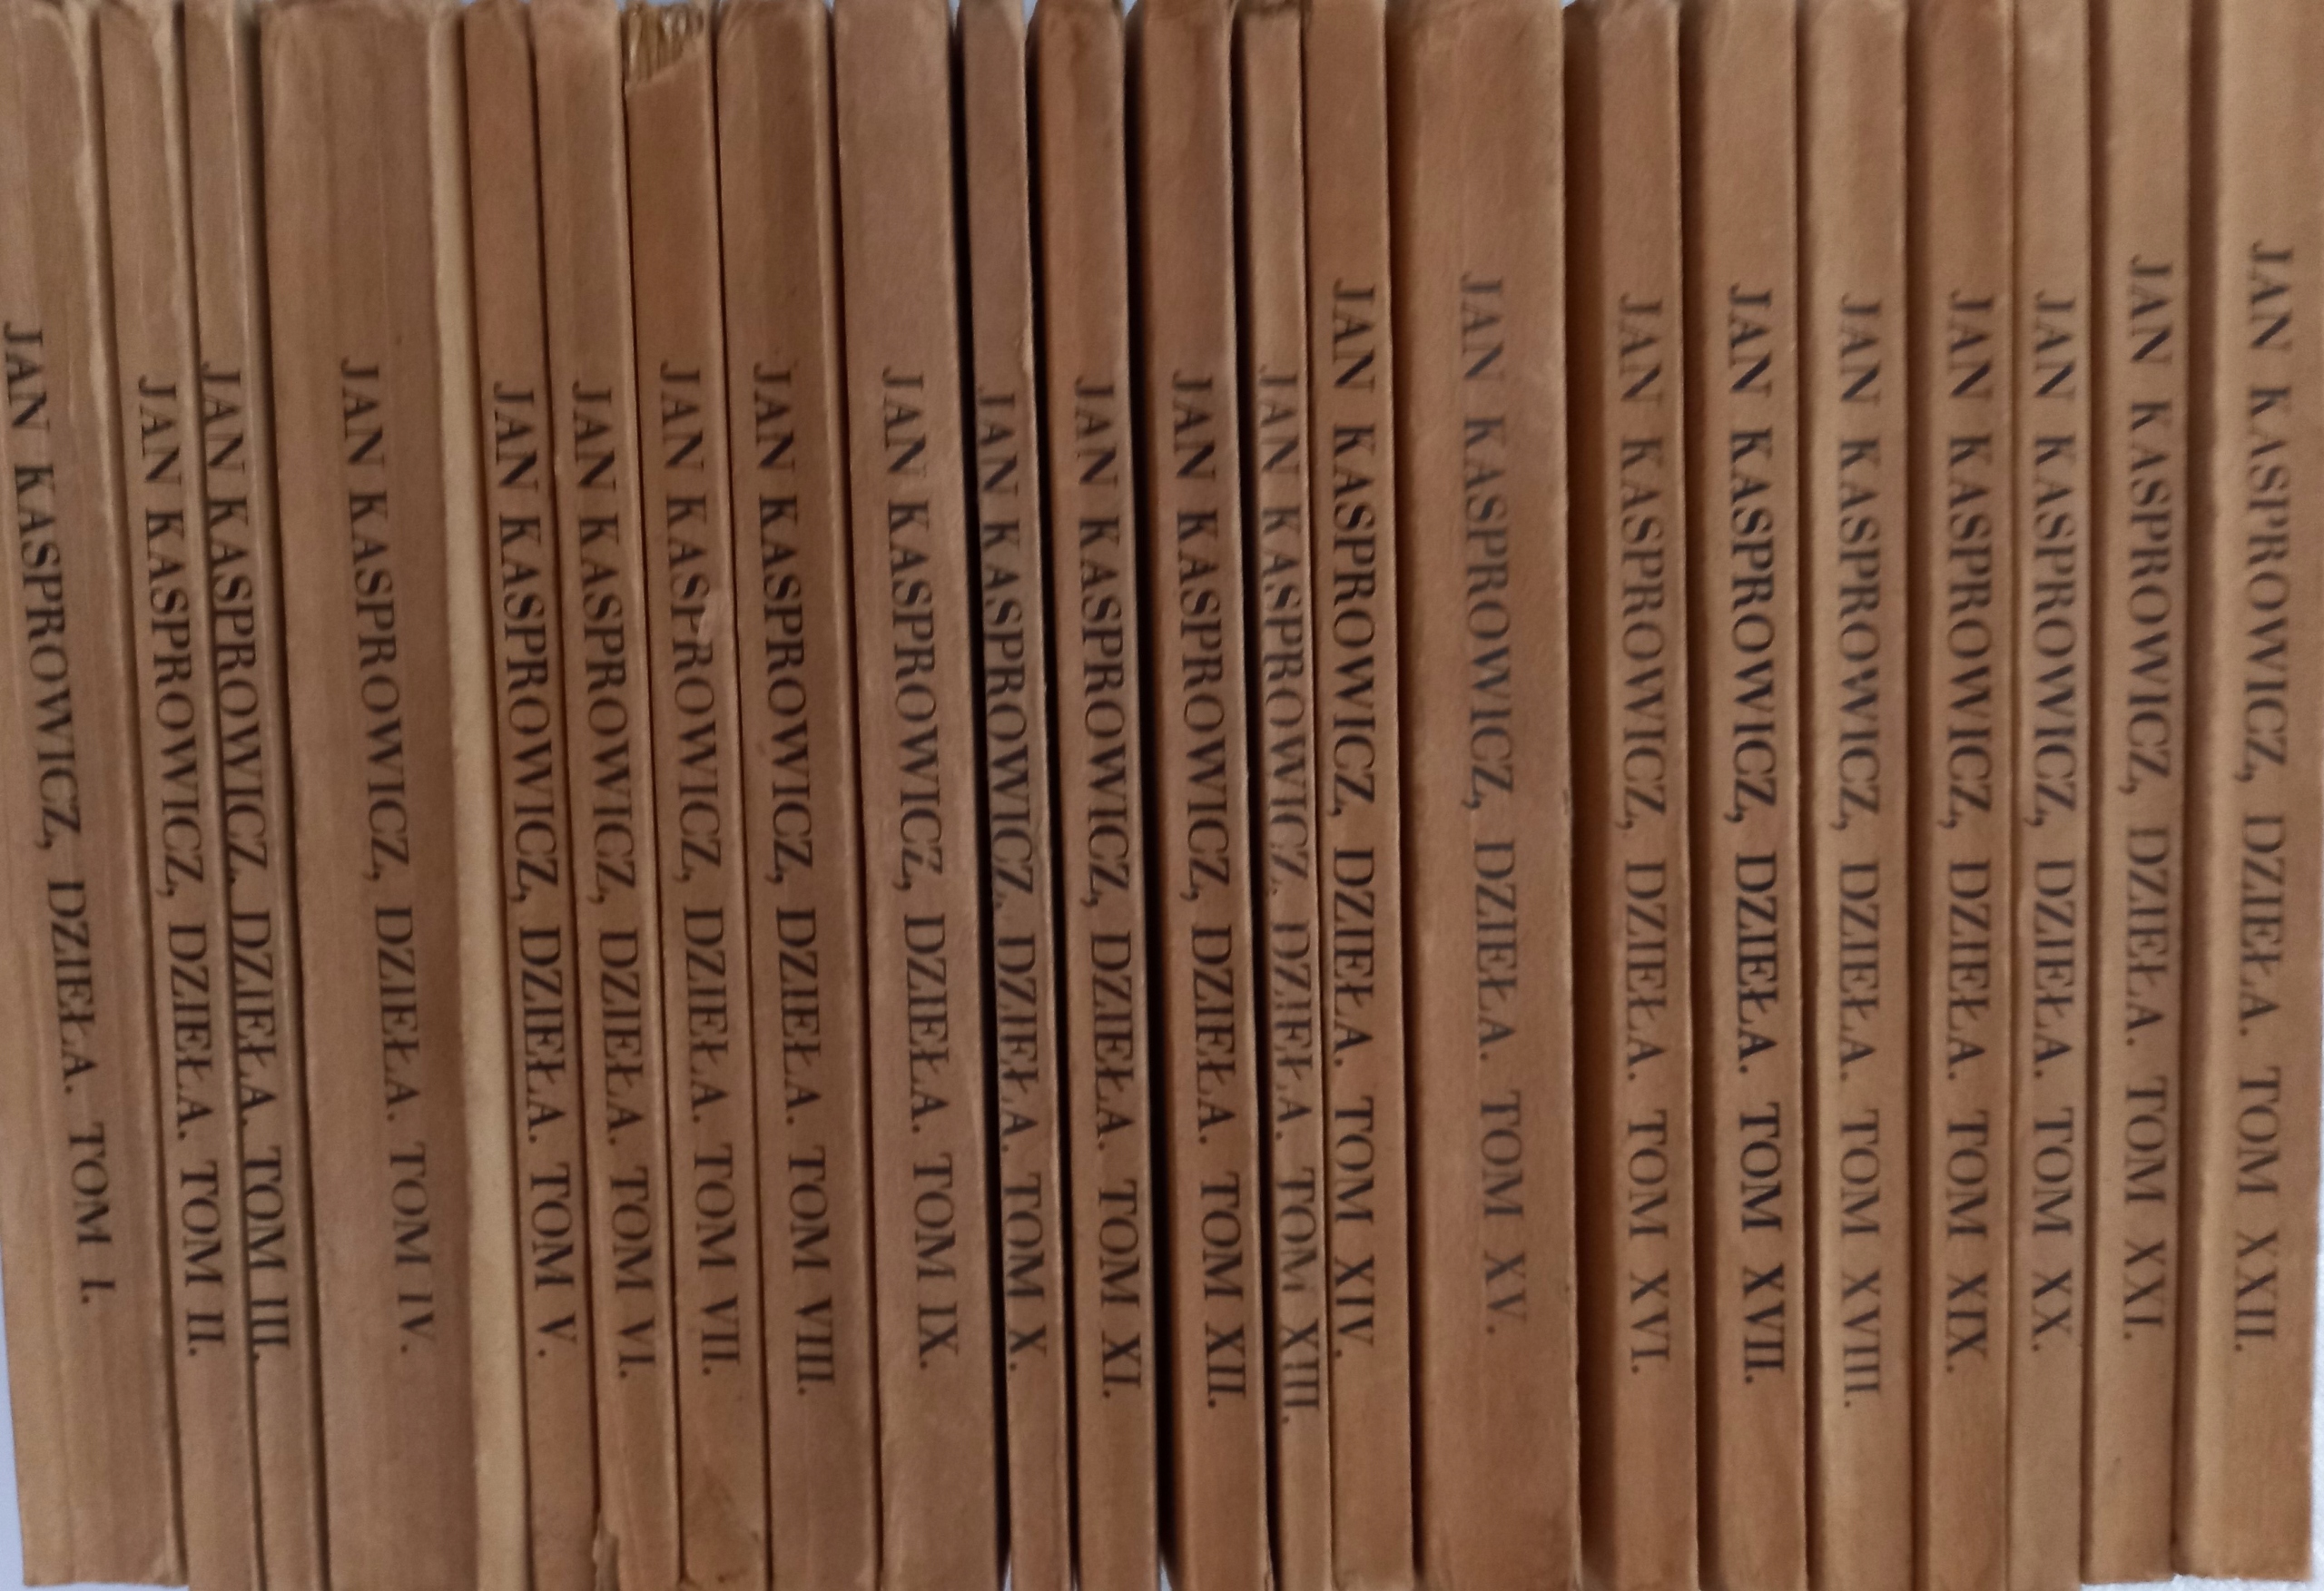 JAN KASPROWICZ, DZIEŁA. TOM I.
JAN KASPROWICZ, DZIEŁA. TOM II.
JAN KASPROWICZ, DZIEŁA. TOM III.
JAN KASPROWICZ, DZIEŁA. TOM IV.
JAN KASPROWICZ, DZIEŁA. TOM V.
JAN KASPROWICZ, DZIEŁA. TOM VI.
JAN KASPROWICZ, DZIEŁA. TOM VII.
JAN KASPROWICZ, DZIEŁA. TOM VIII.
JAN KASPROWICZ, DZIEŁA. TOM IX.
JAN KASPROWICZ, DZIEŁA. TOM X.
JAN KASPROWICZ, DZIEŁA. TOM XI.
JAN KASPROWICZ, DZIEŁA. TOM XII.
JAN KASPROWICZ, DZIEŁA. TOM XIII.
JAN KASPROWICZ, DZIEŁA. TOM XIV.
JAN KASPROWICZ, DZIEŁA. TOM XV.
JAN KASPROWICZ, DZIEŁA. TOM XVI.
JAN KASPROWICZ, DZIEŁA. TOM XVII.
JAN KASPROWICZ, DZIEŁA. TOM XVIII.
JAN KASPROWICZ, DZIEŁA. TOM XIX.
JAN KASPROWICZ, DZIEŁA. TOM XX.
JAN KASPROWICZ, DZIEŁA. TOM XXI.
JAN KASPROWICZ, DZIEŁA. TOM XXII.